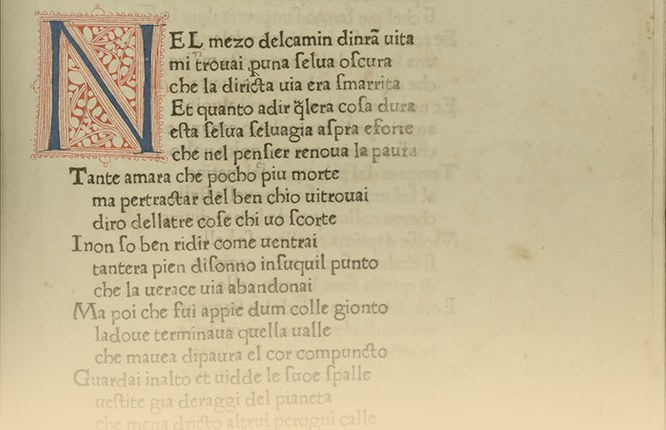 NEL mezo delcamin dinr̃a uita
mi trouai ꝑuna ſelua oſcura
che la diricta uia era ſmarrita
Et quanto adir q̃lera coſa dura
eſta ſelua ſeluagia aſpra eforte
che nel penſier renoua la paura
Tante amara che pocho piu morte
ma pertractar del ben chio uitrouai
diro dellatre coſe chi uo ſcorte
I non ſo ben ridir come uentrai
tantera pien diſonno inſuquil punto
che la uerace uia abandonai
Ma poi che fui appie dum colle gionto
ladoue terminaua quella ualle
che mauea dipaura el cor compuncto
Guardai inalto et uidde le ſuoe ſpalle
ueſtite gia deraggi del pianeta
che mena dricto altrui perogni calle